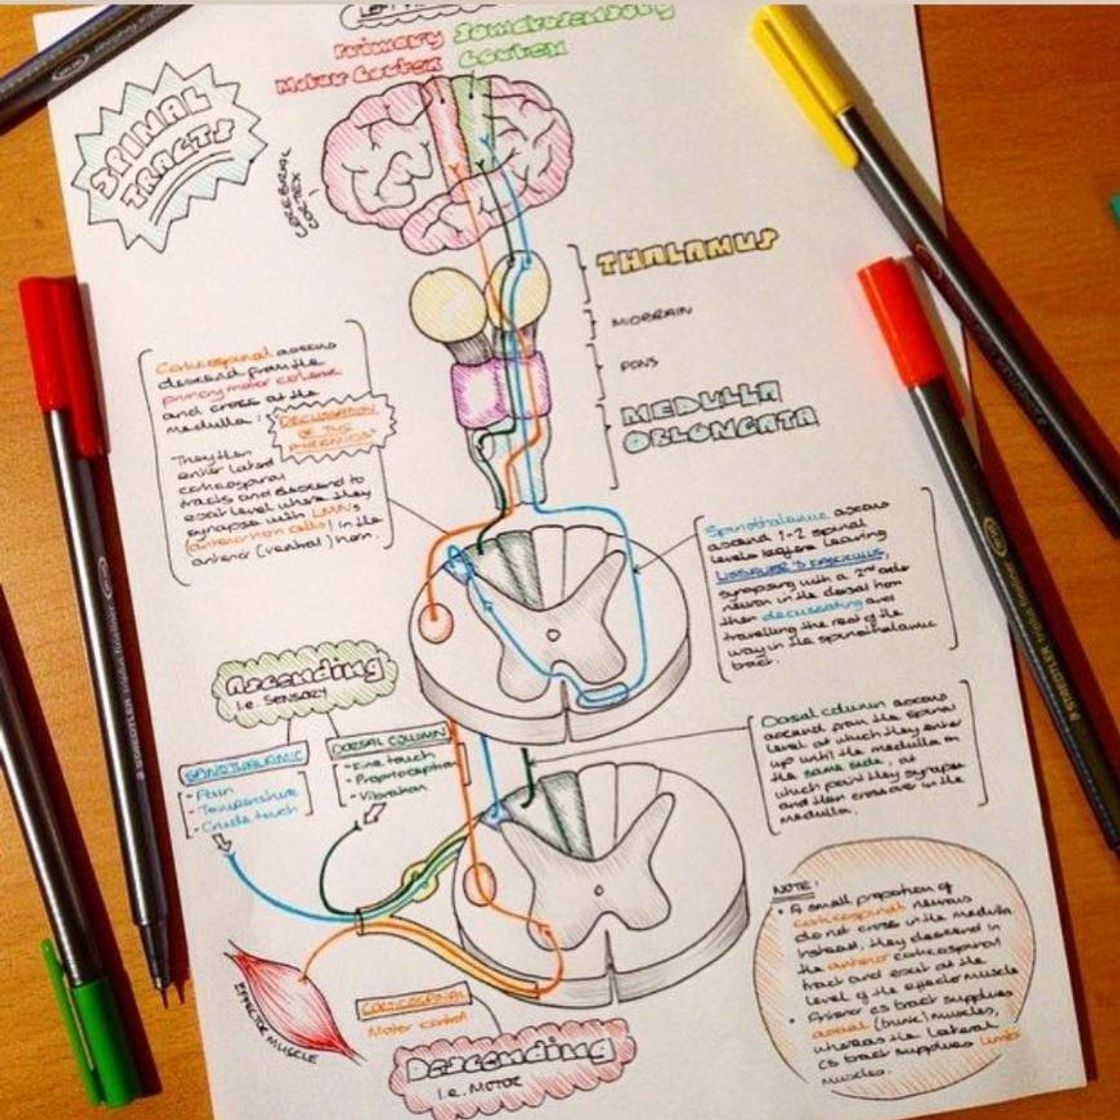 Primary
Motor Cortex
Somatosensory
Cortex
SPINAL
TRACTS
CEREBRAL
CORTEX
THALAMUS
MIDBRAIN
PONS
MEDULLA
OBLONGATA
Corticospinal axons
descend from the
primary motor cortex
and cross at the
medulla:
DECUSSATION
OF THE
PYRAMIDS
They then
enter lateral
corticospinal
tracts and descend to
exit level where they
synapse with LMNs
(anterior horn cells) in the
anterior (ventral) horn.
Spinothalamic axons
ascend 1-2 spinal
levels before leaving
LISSAUER'S FASCICULUS,
synapsing with a 2nd order
neuron in the dorsal horn
then decussating and
travelling the rest of the
way in the spinothalamic
tract.
Ascending
i.e. SENSORY
SPINOTHALAMIC
- Pain
- Temperature
- Crude touch
DORSAL COLUMN
- Fine touch
- Proprioception
- Vibration
Dorsal column axons
ascend from the spinal
level at which they enter
up until the medulla on
the same side, at
which point they synapse
and then cross over in the
medulla.
NOTE:
• A small proportion of
corticospinal neurons
do not cross in the medulla.
Instead, they descend in
the anterior corticospinal
tract and exit at the
level of the effector muscle
• Anterior cs tract supplies
axial (trunk) muscles,
whereas the lateral
cs tract supplies limb
muscles.
EFFECTOR MUSCLE
CORTICOSPINAL
Motor control
Descending
i.e. MOTOR
STAEDTLER
STAEDTLER